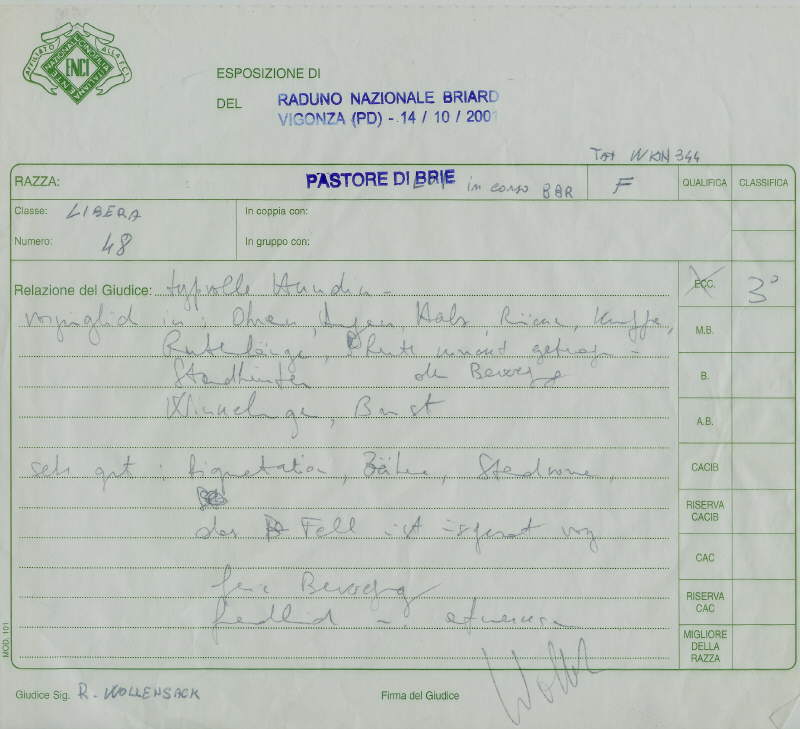 AFFILIATO ALLA F.C.I.
ENTE NAZIONALE CINOFILIA ITALIANA
ENCI
ESPOSIZIONE DI
DEL RADUNO NAZIONALE BRIARD
VIGONZA (PD) - 14 / 10 / 2001
Tat WKN 344
RAZZA: PASTORE DI BRIE in corso F QUALIFICA CLASSIFICA
Classe: LIBERA In coppia con:
Numero: 48 In gruppo con:
Relazione del Giudice: typvolle Hündin - ECC. 3°
vorzüglich in: Ohren, Augen, Hals, Rücken, Kruppe,
M.B.
Rutenlänge, Rute
Standhinten der Bewegung B.
Winkelungen, Brust
A.B.
sehr gut: Pigmentation, Zähne, Standvorne, CACIB
RISERVA CACIB
das Fell ist
CAC
Bewegung RISERVA
freundlich CAC
MIGLIORE DELLA RAZZA
MOD. 101
Giudice Sig. R. WOLLENSACK Firma del Giudice